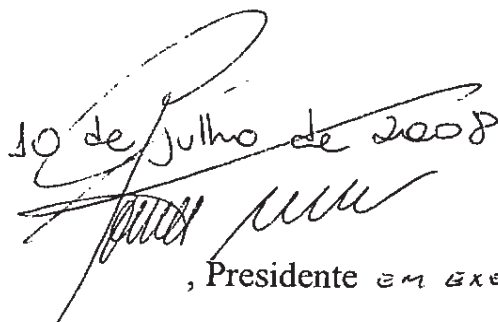 10 de julho de 2008
, Presidente EM EXE